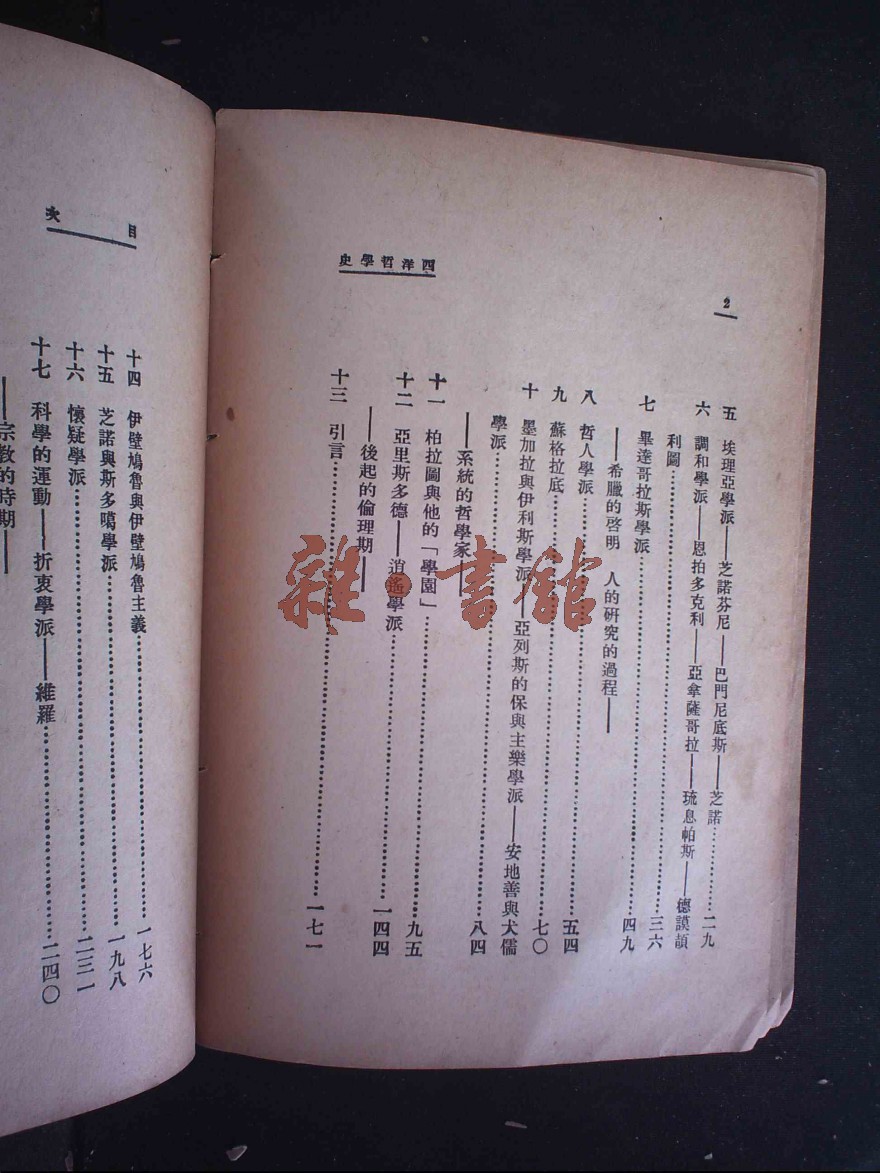 2
西洋哲學史
五 埃理亞學派——芝諾芬尼——巴門尼底斯——芝諾……二九
六 調和學派——恩拍多克利——亞拿薩哥拉——琉息帕斯——德謨頡
利圖……三六
七 畢達哥拉斯學派……四九
——希臘的啓明 人的研究的過程——
八 哲人學派……五四
九 蘇格拉底……七〇
十 墨加拉與伊利斯學派——亞列斯的保與主樂學派——安地善與犬儒
學派……八四
——系統的哲學家——
十一 柏拉圖與他的「學園」……九五
十二 亞里斯多德——逍遙學派……一四四
——後起的倫理期——
十三 引言……一七一
目次
十四 伊壁鳩魯與伊壁鳩魯主義……一七六
十五 芝諾與斯多噶學派……一九八
十六 懷疑學派……二三一
十七 科學的運動——折衷學派——維羅……二四〇
——宗教的時期——
雜·書館